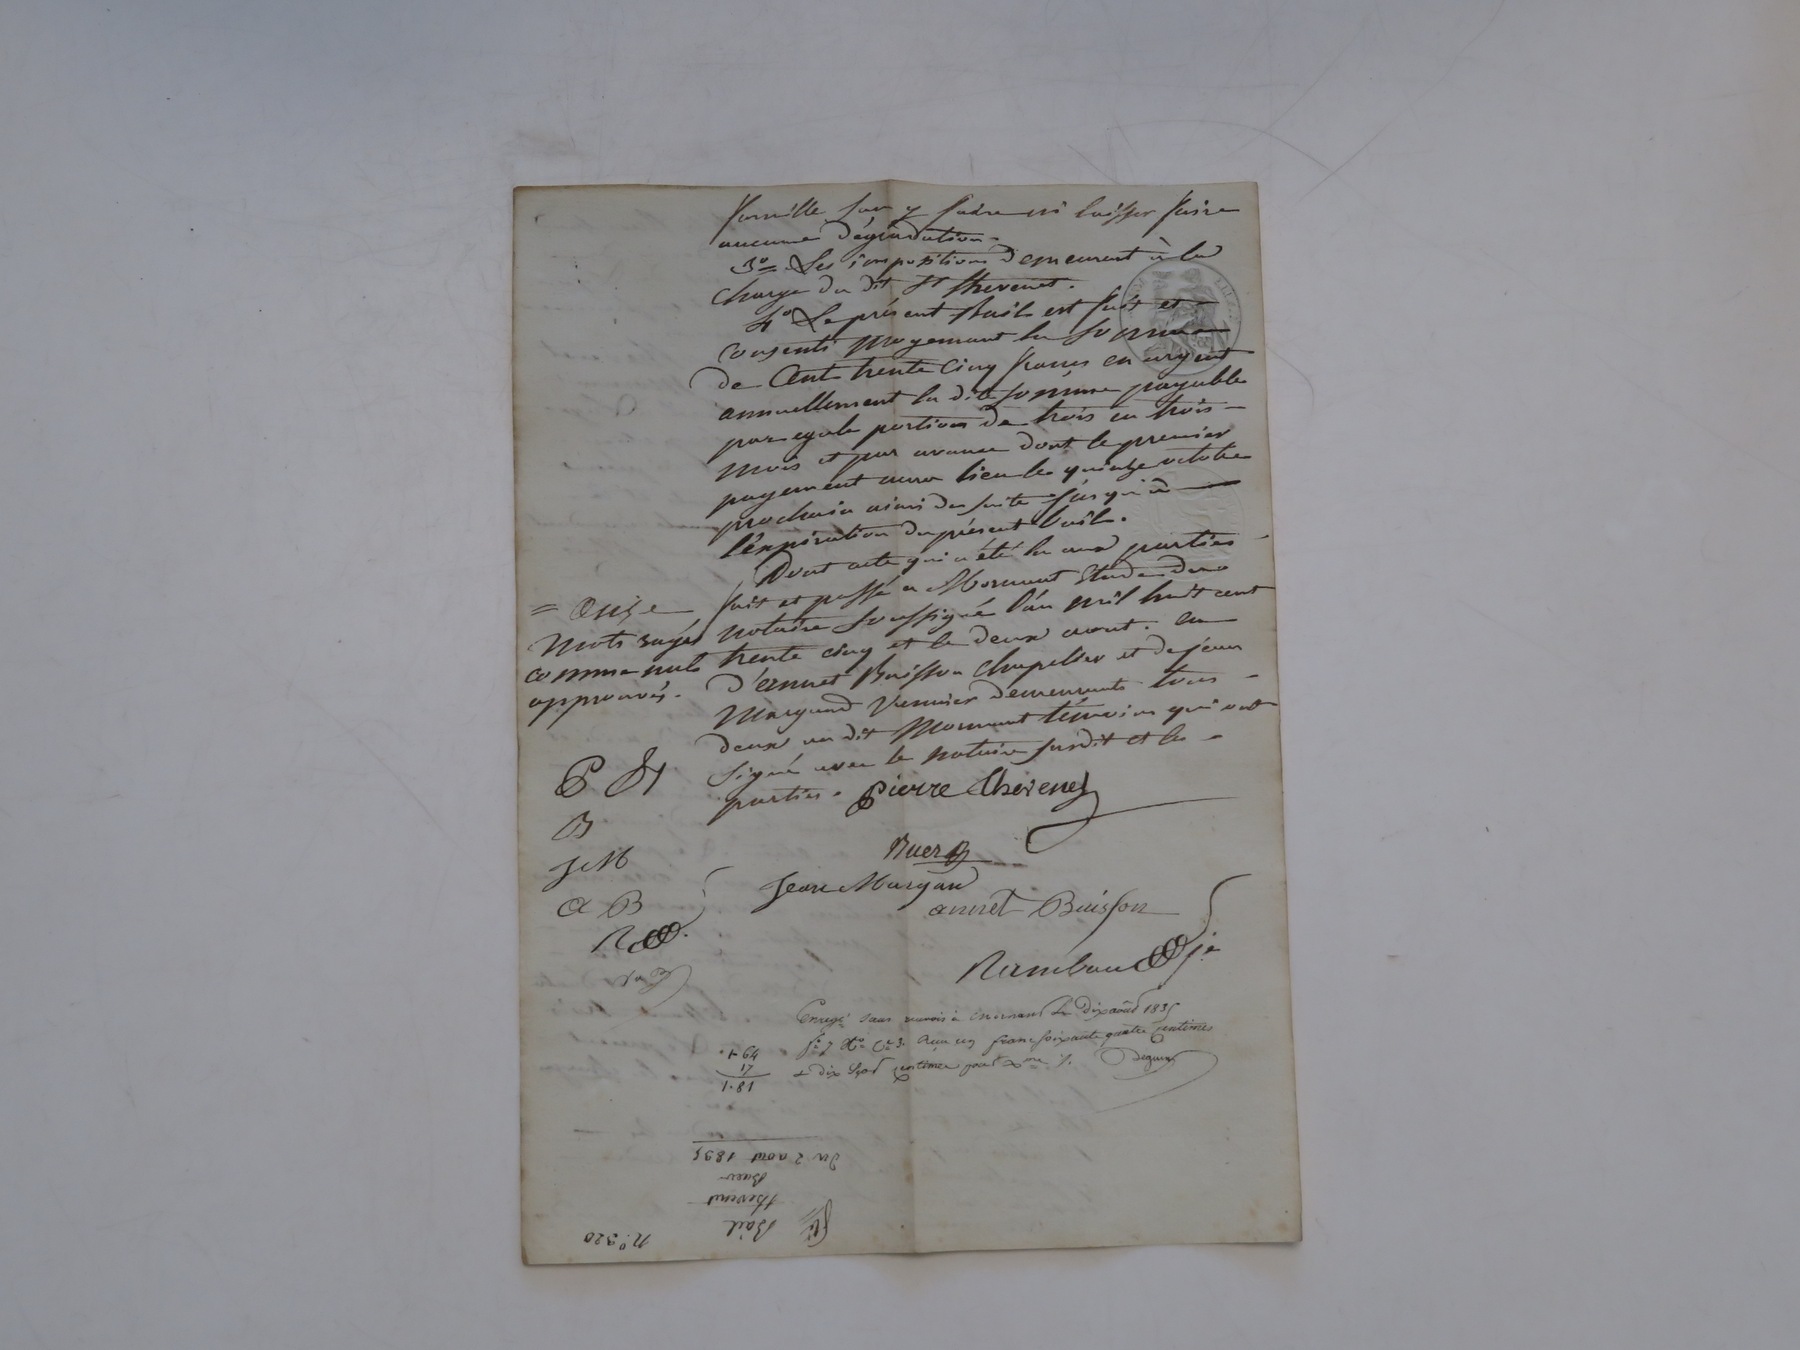 famille sans y faire ni laisser faire
aucune dégradation.
3º Les impositions demeurent à la
charge du dit St thevenet.
4º Le présent Bail est fait et
consenti moyennant la somme
de Cent trente cinq francs en argent
annuellement la dite somme payable
par egale portion de trois en trois
mois et par avance dont le premier
payement aura lieu le quinze octobre
prochain ainsi de suite jusqu'à
l'expiration du présent bail.
Dont acte qui a été lu aux parties
fait et passé a Mornant Etude du
notaire soussigné l'an mil huit cent
trente cinq et le deux aout. en
d'annet Buisson chapelier et de jean
Margand demeurants tous
deux au dit Mornant témoins qui ont
signé avec le notaire susdit et les
parties.
= Onze
mots rayés
comme nuls
approuvés.
P th
B
J M
a B
R
Pierre Thevenet
Buer
Jean Margand
annet Buisson
Rambaud
Enregé sans renvoi à Mornant le dix août 1835
Reçu un franc soixante quatre centimes
& dix sept centimes pour Xme
1.64
17
1.81
du 2 aout 1835
Buer
thevenet
Bail
nº 320